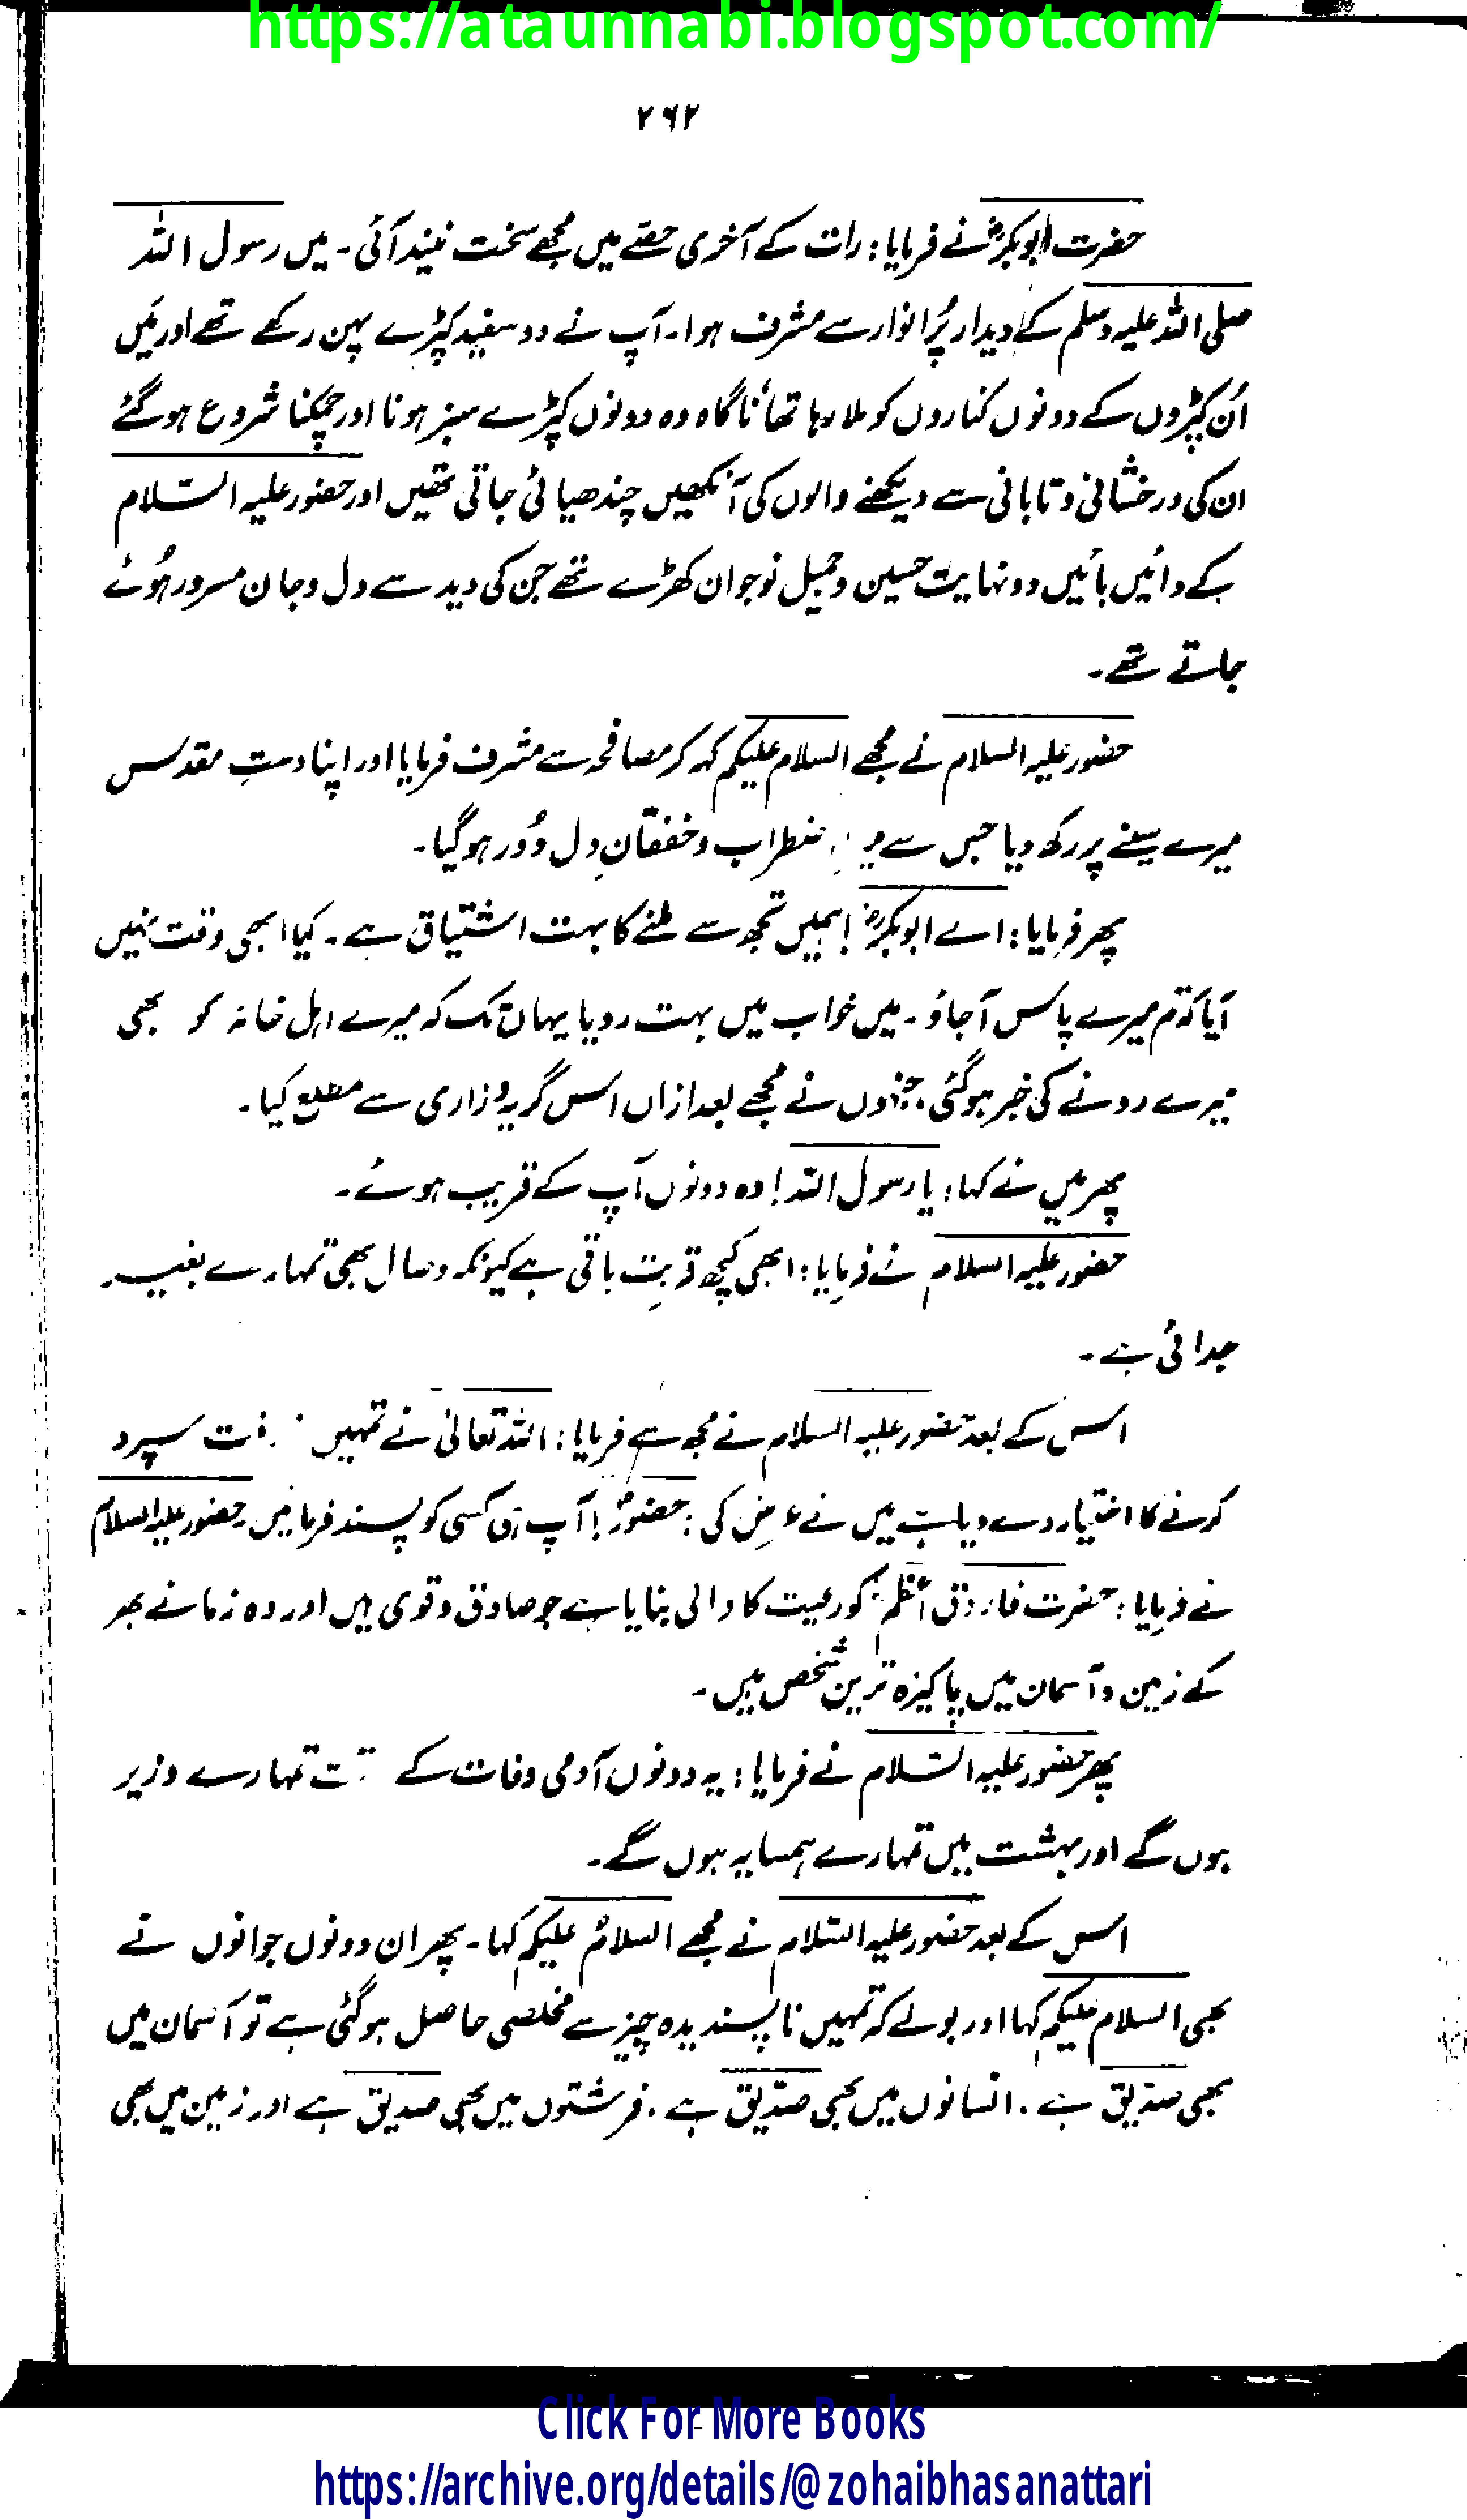 https://ataunnabi.blogspot.com/
۲۶۲
حضرت ابوبکرؓ نے فرمایا: رات کے آخری حصے میں مجھے سخت نیند آئی۔ میں رسول اللہ
صلی اللہ علیہ وسلم کے دیدار پُر انوار سے مشرف ہوا۔ آپ نے دو سفید کپڑے پہن رکھے تھے اور میَں
اُن کپڑوں کے دونوں کناروں کو ملا رہا تھا ناگاہ وہ دونوں کپڑے سبز ہونا اور چمکنا شروع ہو گئے
ان کی درخشانی و تابانی سے دیکھنے والوں کی آنکھیں چندھیائی جاتی تھیں اور حضور علیہ السّلام
کے دائیں بائیں دو نہایت حسین و جمیل نوجوان کھڑے تھے جن کی دید سے دل و جان مسرور ہُوئے
جاتے تھے۔
حضور علیہ السلام نے مجھے السلام علیکم کہہ کر مصافحہ سے مشرف فرمایا اور اپنا دستِ مقدس
میرے سینے پر رکھ دیا جس سے نظراب و خفقانِ دل دُور ہو گیا۔
پھر فرمایا: اے ابوبکرؓ! ہمیں تجھ سے ملنے کا بہت اشتیاق ہے۔ کیا ابھی وقت نہیں
آیا کہ تم میرے پاس آ جاؤ۔ میں خواب میں بہت رویا یہاں تک کہ میرے اہل خانہ کو بھی
میرے رونے کی خبر ہو گئی، جنہوں نے مجھے بعد ازاں اس گریہ و زاری سے مطلع کیا۔
پھر میں نے کہا: یا رسول اللہ! وہ دونوں آپ کے قریب ہوئے۔
حضور علیہ السلام نے فرمایا: ابھی کچھ قربت باقی ہے کیونکہ وصال بھی تمہارے بغیر
جدائی ہے۔
اس کے بعد حضور علیہ السلام نے مجھ سے فرمایا: اللہ تعالیٰ نے تمہیں سپرد
کرنے کا اختیار دے دیا ہے میں نے عرض کی: حضورؐ! آپ ہی کسی کو پسند فرمائیں۔ حضور علیہ السلام
نے فرمایا: حضرت فاروق اعظمؓ کو رعیت کا والی بنایا ہے جو صادق و قوی ہیں اور وہ زمانے بھر
کے زمین و آسمان میں پاکیزہ ترین شخص ہیں۔
پھر حضور علیہ السّلام نے فرمایا: یہ دونوں آدمی وفات کے تمہارے وزیر
ہوں گے اور بہشت میں تمہارے ہمسایہ ہوں گے۔
اس کے بعد حضور علیہ السّلام نے مجھے السلامُ علیکم کہا۔ پھر ان دونوں جوانوں نے
بھی السلام علیکم کہا اور بولے کہ تمہیں ناپسندیدہ چیز سے مخلصی حاصل ہو گئی ہے تو آسمان میں
بھی صدّیق ہے۔ انسانوں میں بھی صدّیق ہے۔ فرشتوں میں بھی صدیق ہے اور زمین میں بھی
Click For More Books
https://archive.org/details/@zohaibhasanattari